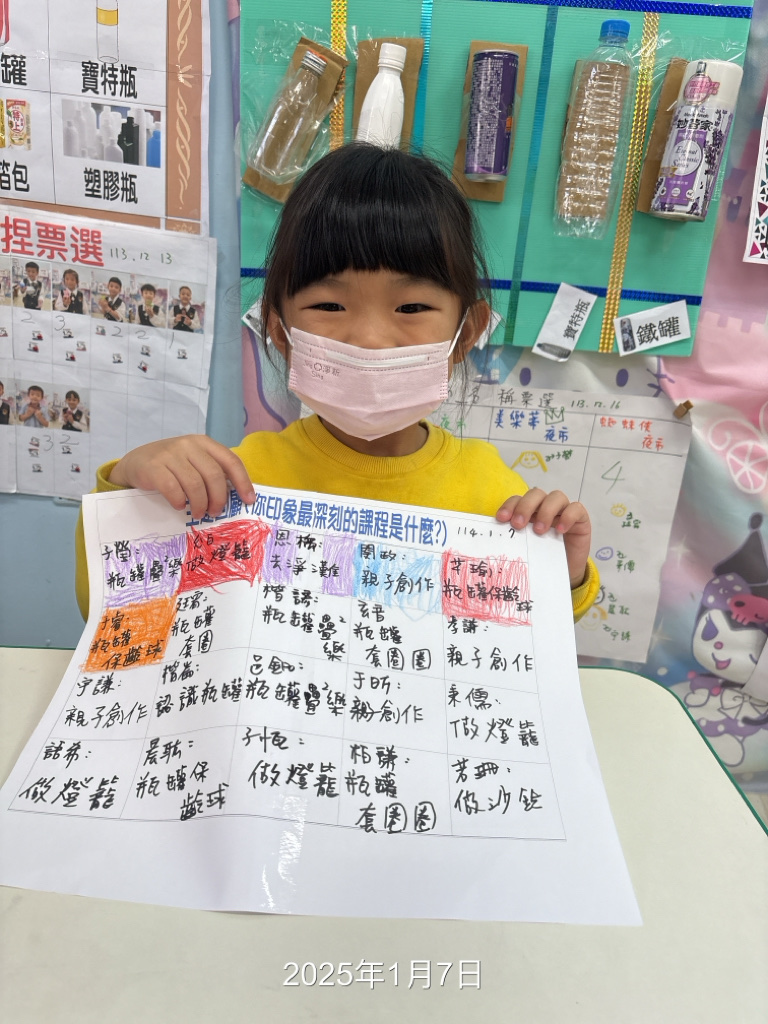 罐
寶特瓶
箔包
塑膠瓶
捏票選 113.12.13
2 3 2 2 1
3 2
寶特瓶
鐵罐
稱票選 113.12.16
美樂蒂
夜市
蜘蛛俠
夜市
4
主題回顧(你印象最深刻的課程是什麼?) 114.1.7
瓶罐疊樂
做燈籠
去淨灘
親子創作
瓶罐保齡球
瓶罐
保齡球
瓶罐
套圈
楷諾:
瓶罐疊疊樂
瓶罐
套圈圈
李謙:
親子創作
宇謙:
親子創作
認識瓶罐
瓶罐疊疊樂
于昕:
創作
秉儒:
做燈籠
語希:
做燈籠
瓶罐保
齡球
子恒:
做燈籠
柏謙:
瓶罐
套圈圈
若珊:
做沙鈴
2025年1月7日